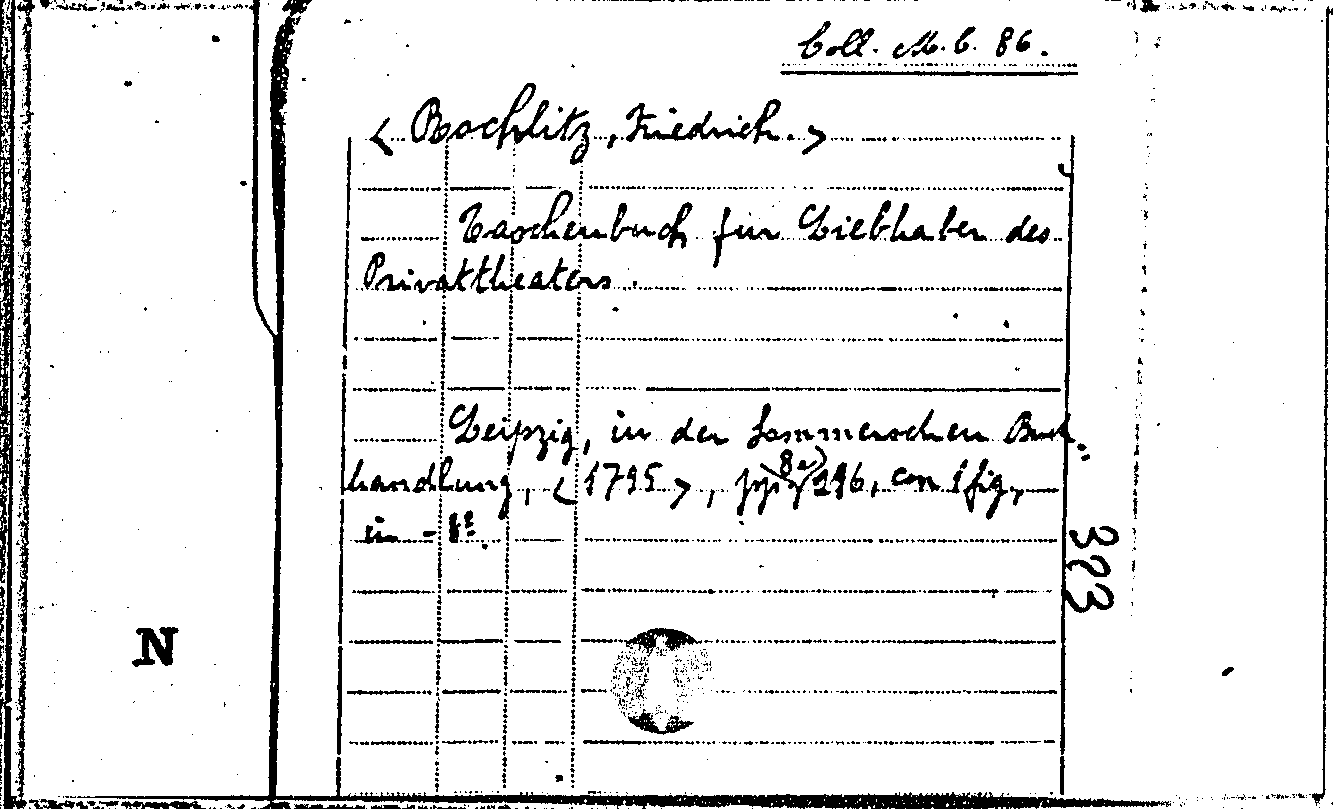 Coll. M. C. 86.
< Rochlitz, Friedrich. >
Taschenbuch für Liebhaber des
Privattheaters.
Leipzig, in der Sommerschen Buch-
handlung, < 1795 >, pp. 8 296, con 1 fig,
in - 8°.
383
N